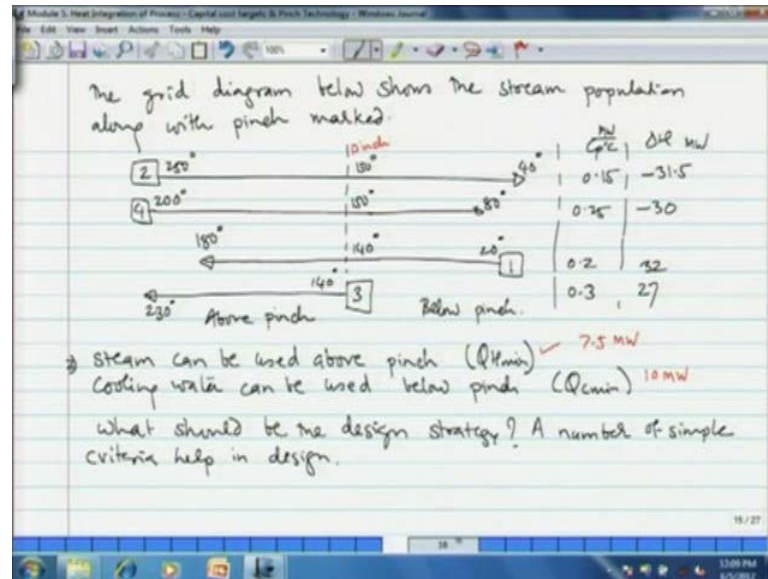 Module 5: Heat Integration of Process - Capital cost targets & Pinch Technology - Windows Journal
File Edit View Insert Actions Tools Help
100%
The grid diagram below shows the stream population
along with pinch marked.
pinch
MW
Cp°C ΔH MW
2 250° 150° 40° 0.15 -31.5
4 200° 150° 80° 0.25 -30
180° 140° 20° 1 0.2 32
230° 140° 3 0.3 27
Above pinch Below pinch.
⇒ steam can be used above pinch (QHmin) ✓ 7.5 MW
Cooling water can be used below pinch (Qcmin) 10 MW
What should be the design strategy? A number of simple
criteria help in design.
15 / 27
16
12:09 PM
1/5/2012